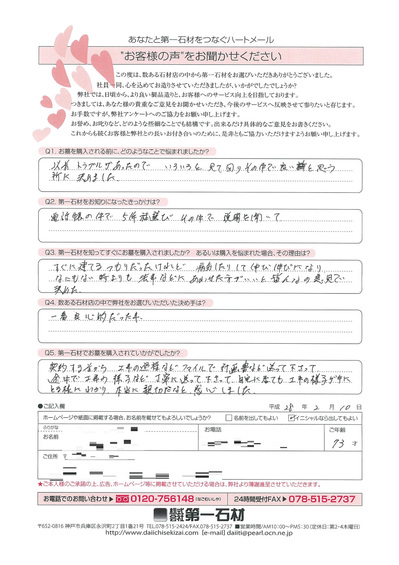 あなたと第一石材をつなぐハートメール
"お客様の声"をお聞かせください
この度は、数ある石材店の中から第一石材をお選びいただきありがとうございました。
社員一同、心を込めてお造りさせていただきましたが、いかがでしたでしょうか？
弊社では、日頃から、より良い製品造りと、お客様へのサービス向上を目指しております。
つきましては、あなた様の貴重なご意見をお聞かせいただき、今後のサービスへ反映させて参りたいと存じます。
お手数ですが、弊社アンケートへのご協力をお願い申し上げます。
お誉め、お叱りなど、どのような些細なことでも結構です。出来るだけ具体的なご意見をお書きください。
これからも続くお客様と弊社との長いお付き合いのために、是非ともご協力いただけますようお願い申し上げます。
Q1. お墓を購入される前に、どのようなことで悩まれましたか？
以前トラブルがあったので いろいろと見て回り その中で良い
所に決めました
Q2. 第一石材をお知りになったきっかけは？
電話帳の中で 5件 選び その中で
Q3. 第一石材を知ってすぐにお墓を購入されましたか？ あるいは購入を悩まれた場合、その理由は？
すぐに建てるつもりだったけれど 病気したりして のびのびになり
なにもない時よりも 法事などに あわせた方がいいと
決めた
Q4. 数ある石材店の中で弊社をお選びいただいた決め手は？
一番良心的だった事
Q5. 第一石材でお墓を購入されていかがでしたか？
契約する前から 工事の過程など ファイルで 送って下さって
途中で工事の様子など 送って下さって 工事の様子が
とても 親切だなと 感じました
●ご記入欄
平成 28年 2月 10日
ホームページや紙面に掲載する場合、お名前を載せてもよろしいでしょうか？ □名前を出してもよい ☑イニシャルなら出してもよい
ふりがな
お名前
お電話
ご年齢
73才
ご住所
★ご本人様のご承諾の上、広告、ホームページ等に掲載させていただける場合は、弊社より薄謝進呈させていただきます。
お電話でのお問い合わせ▶ 0120-756148 24時間受付FAX▶078-515-2737
株式会社 第一石材
〒652-0816 神戸市兵庫区永沢町2丁目1番21号 TEL.078-515-2424/FAX.078-515-2737 ■営業時間/AM10:00〜PM5:30(定休日:第2・4水曜日)
http://www.daiichisekizai.com [e-mail] daiiti@pearl.ocn.ne.jp